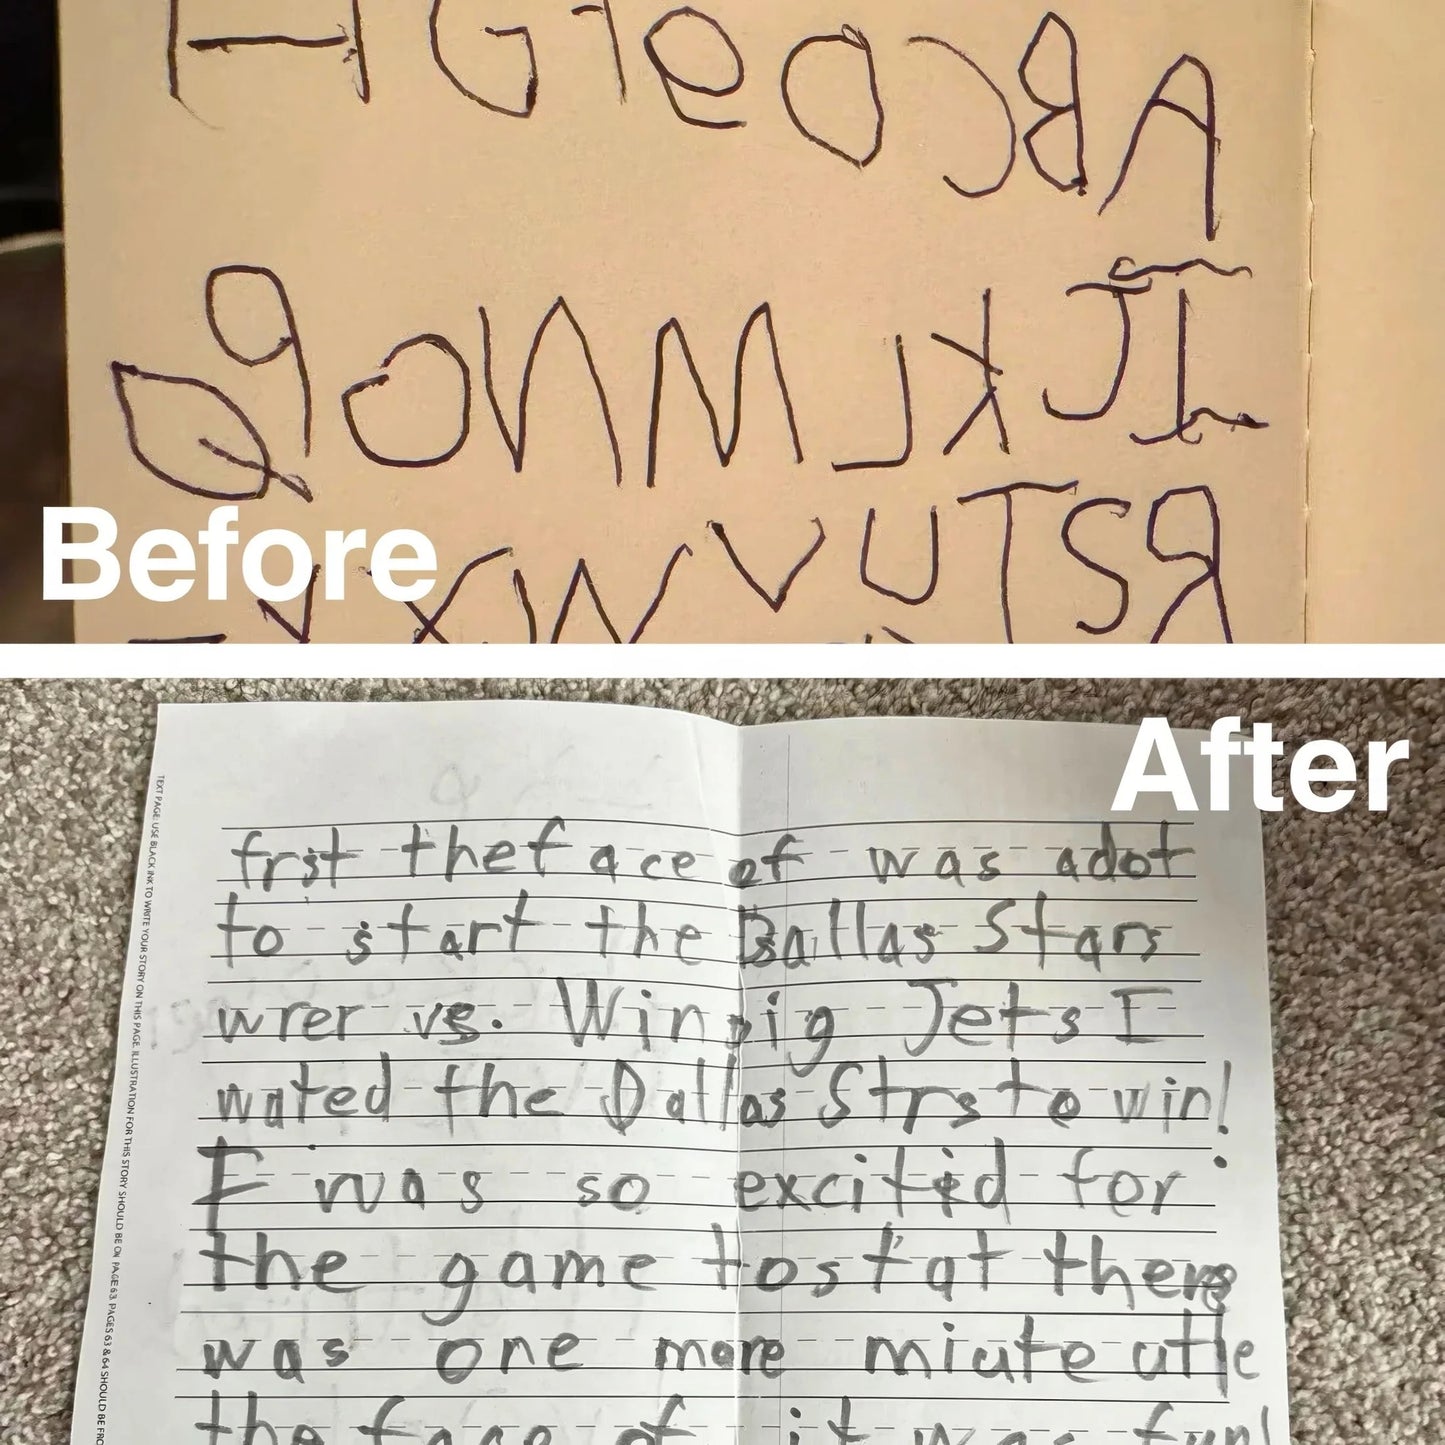 A B C D e f G H
I J K L M N O P Q
R S T U V W X Y
Before
After
TEXT PAGE: USE BLACK INK TO WRITE YOUR STORY ON THIS PAGE. ILLUSTRATION FOR THIS STORY SHOULD BE ON PAGE 63. PAGES 63 & 64 SHOULD BE FRO
frst the face of was adot
to start the Dallas Stars
wrer vs. Winpig Jets I
wated the Dallas Strs to win!
I was so excited for
the game to stat there
was one more miute utle
the face of it was fun!